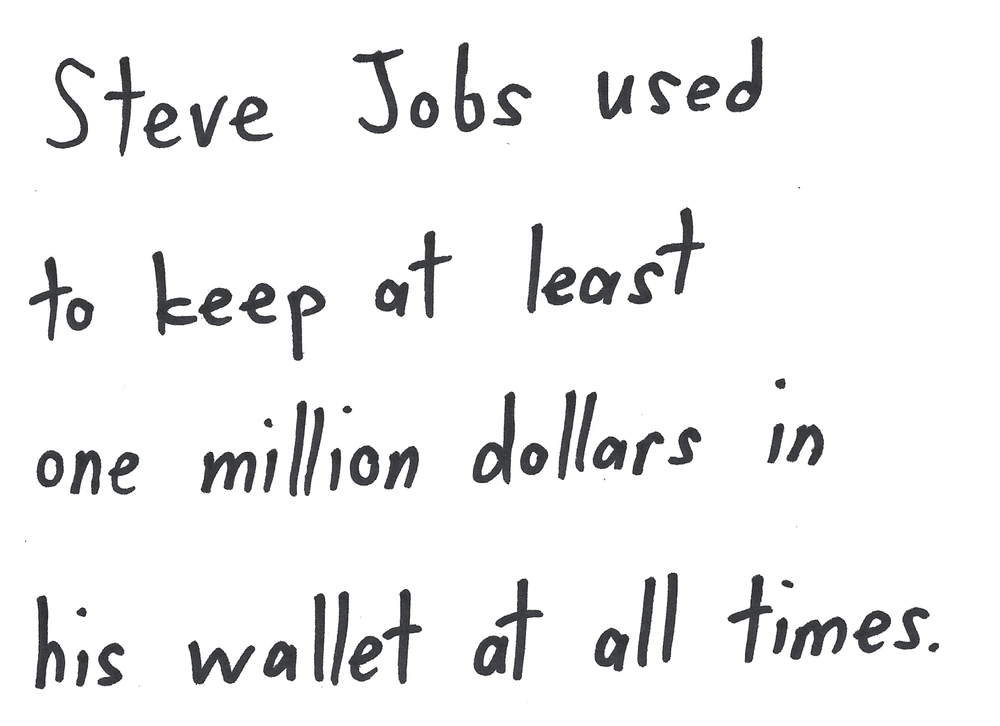 Steve Jobs used
to keep at least
one million dollars in
his wallet at all times.